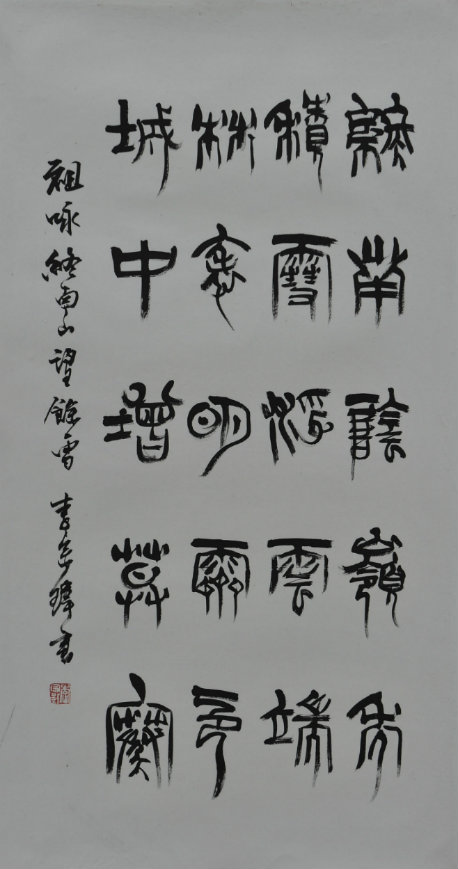 終南陰嶺秀
積雪浮雲端
林表明霽色
城中增暮寒
祖咏終南山望餘雪 書